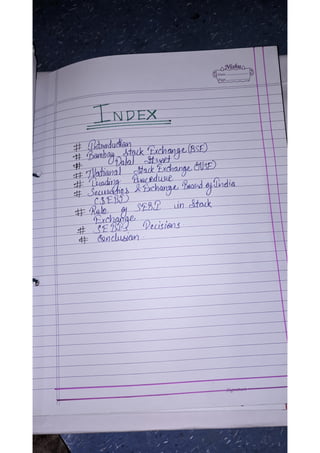 INDEX
# Introduction
# Bombay Stock Exchange (BSE)
# Dalal Street
# National Stock Exchange (NSE)
# Trading Procedure
# Securities & Exchange Board of India
(SEBI)
# Role of SEBI in Stock
Exchange
# SEBI's Decisions
# Conclusion